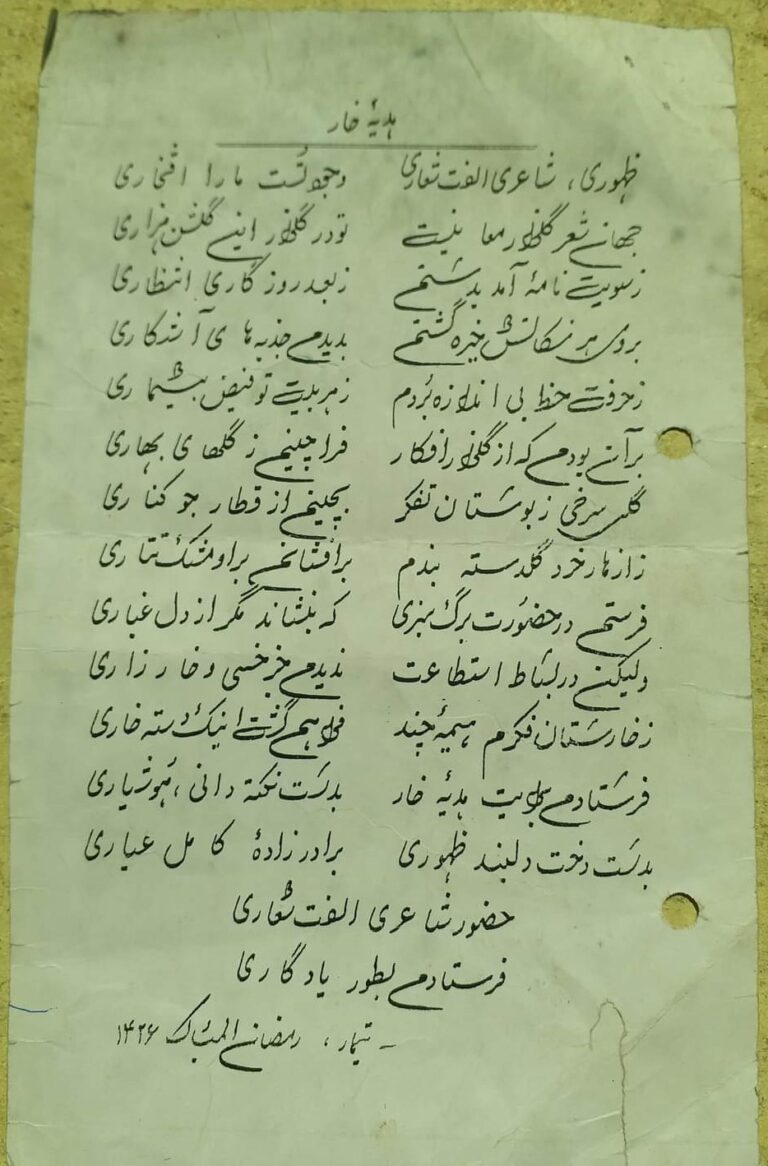 هدیهٔ خار
ظهوری، شاعری الفت شعاری وجودتست مارا افتخاری
جهانِ شعر گلزار معانیست تو در گلزار اینے گلشن هزاری
زسویت نامهٔ آمد بدستم زبعد روزگاری انتظاری
بروی هر نکاتش خیره گشتم بدیدم جذبه های آشکاری
زحرفت حظ بی اندازه بُردم زهر بیت تو فیض بیشماری
برآن بودم که از گلزار افکار فرا چینم ز گلهای بهاری
گل سرخی زبوستان تفکر بچینم از قطار جو کناری
زازهار خرد گلدسته بندم برافشانم براو مشک تتاری
فرستم در حضورت برگ سبزی که بنشاند مگر از دل غباری
ولیکن در بساط استطاعت ندیدم جز خسی و خار زاری
زخارستان فکرم هیمهٔ چند فراهم گشت اینک دسته خاری
فرستادم برایت هدیهٔ خار بدست نکته دانی، هوشیاری
بدست دخت دلبند ظهوری برادرزادهٔ کامل عیاری
حضور شاعری الفت شعاری
فرستادم بطور یادگاری
ـ تیمار، رمضان المبارک ۱۴۲۶